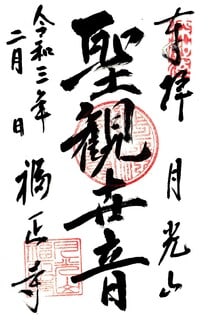 奉拝
月光山
聖観世音
福正寺
令和三年
二月 日